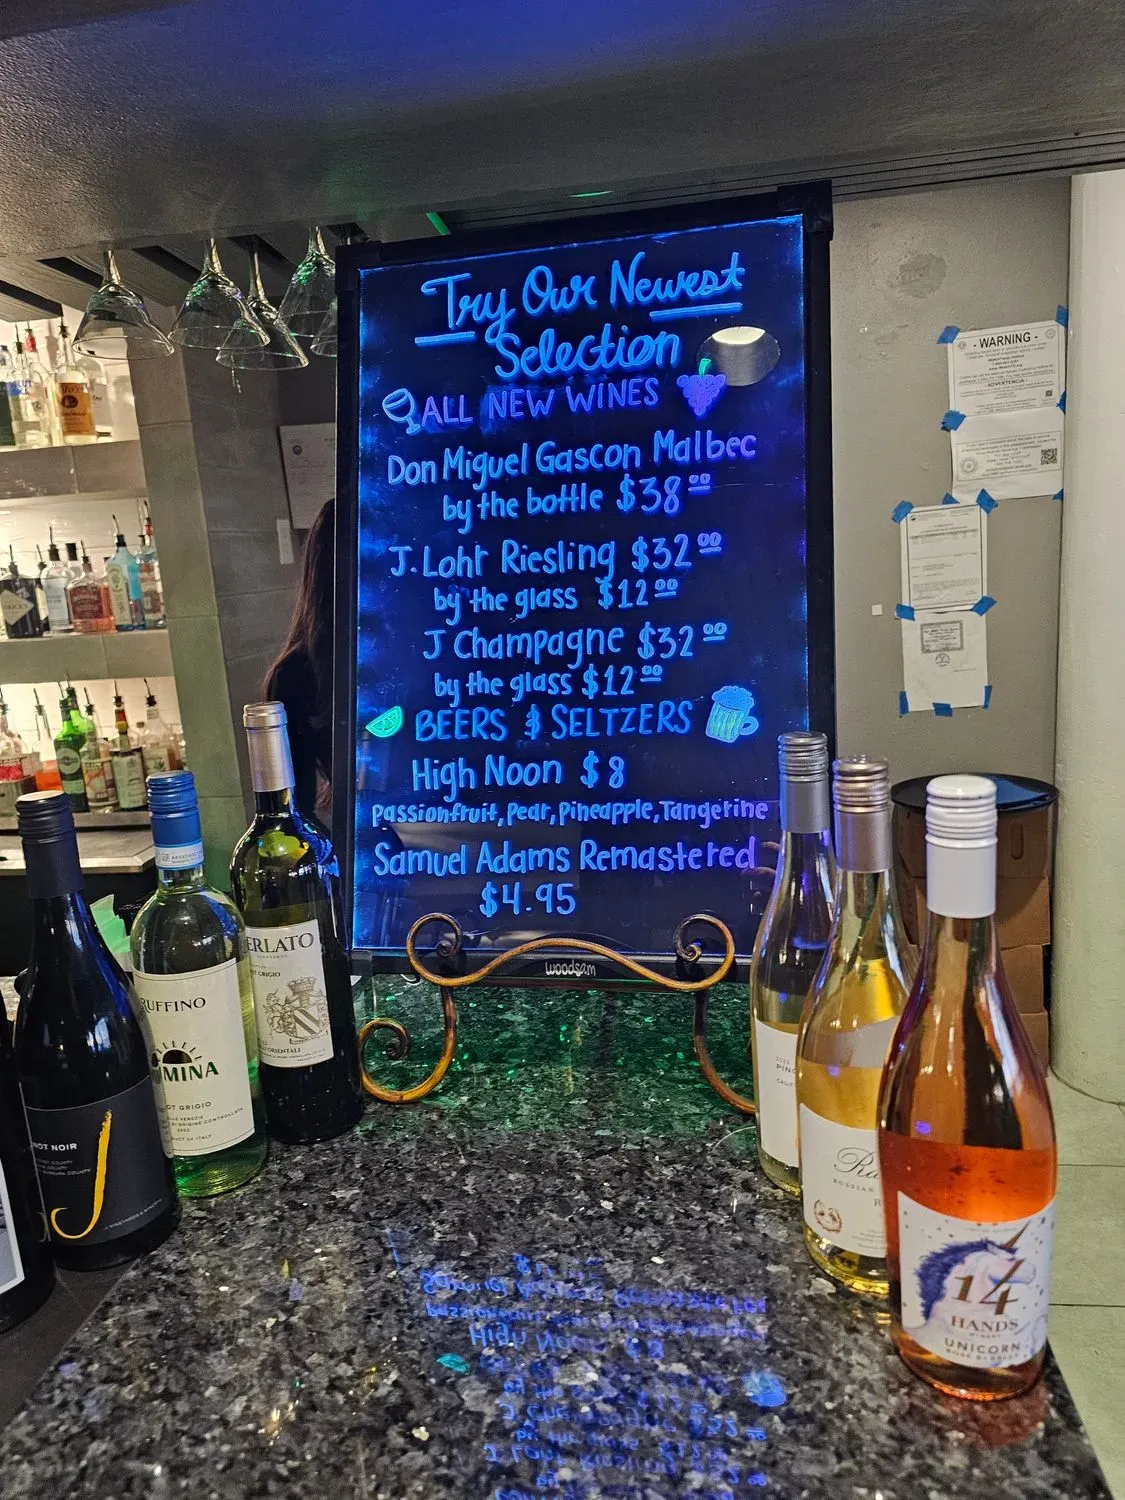 Try Our Newest
Selection
ALL NEW WINES
Don Miguel Gascon Malbec
by the bottle $38.00
J. Lohr Riesling $32.00
by the glass $12.00
J Champagne $32.00
by the glass $12.00
BEERS & SELTZERS
High Noon $8
Passionfruit, Pear, Pineapple, Tangerine
Samuel Adams Remastered
$4.95
woodsam
- WARNING -
- ADVERTENCIA -
NOT NOIR
RUFFINO
MINA
OT GRIGIO
2022
PRODUCT OF ITALY
ERLATO
OT GRIGIO
ORIENTALI
2022
PINO
CALIF
RUSSIAN
14
HANDS
WINERY
UNICORN
ROSÉ BUBBLES